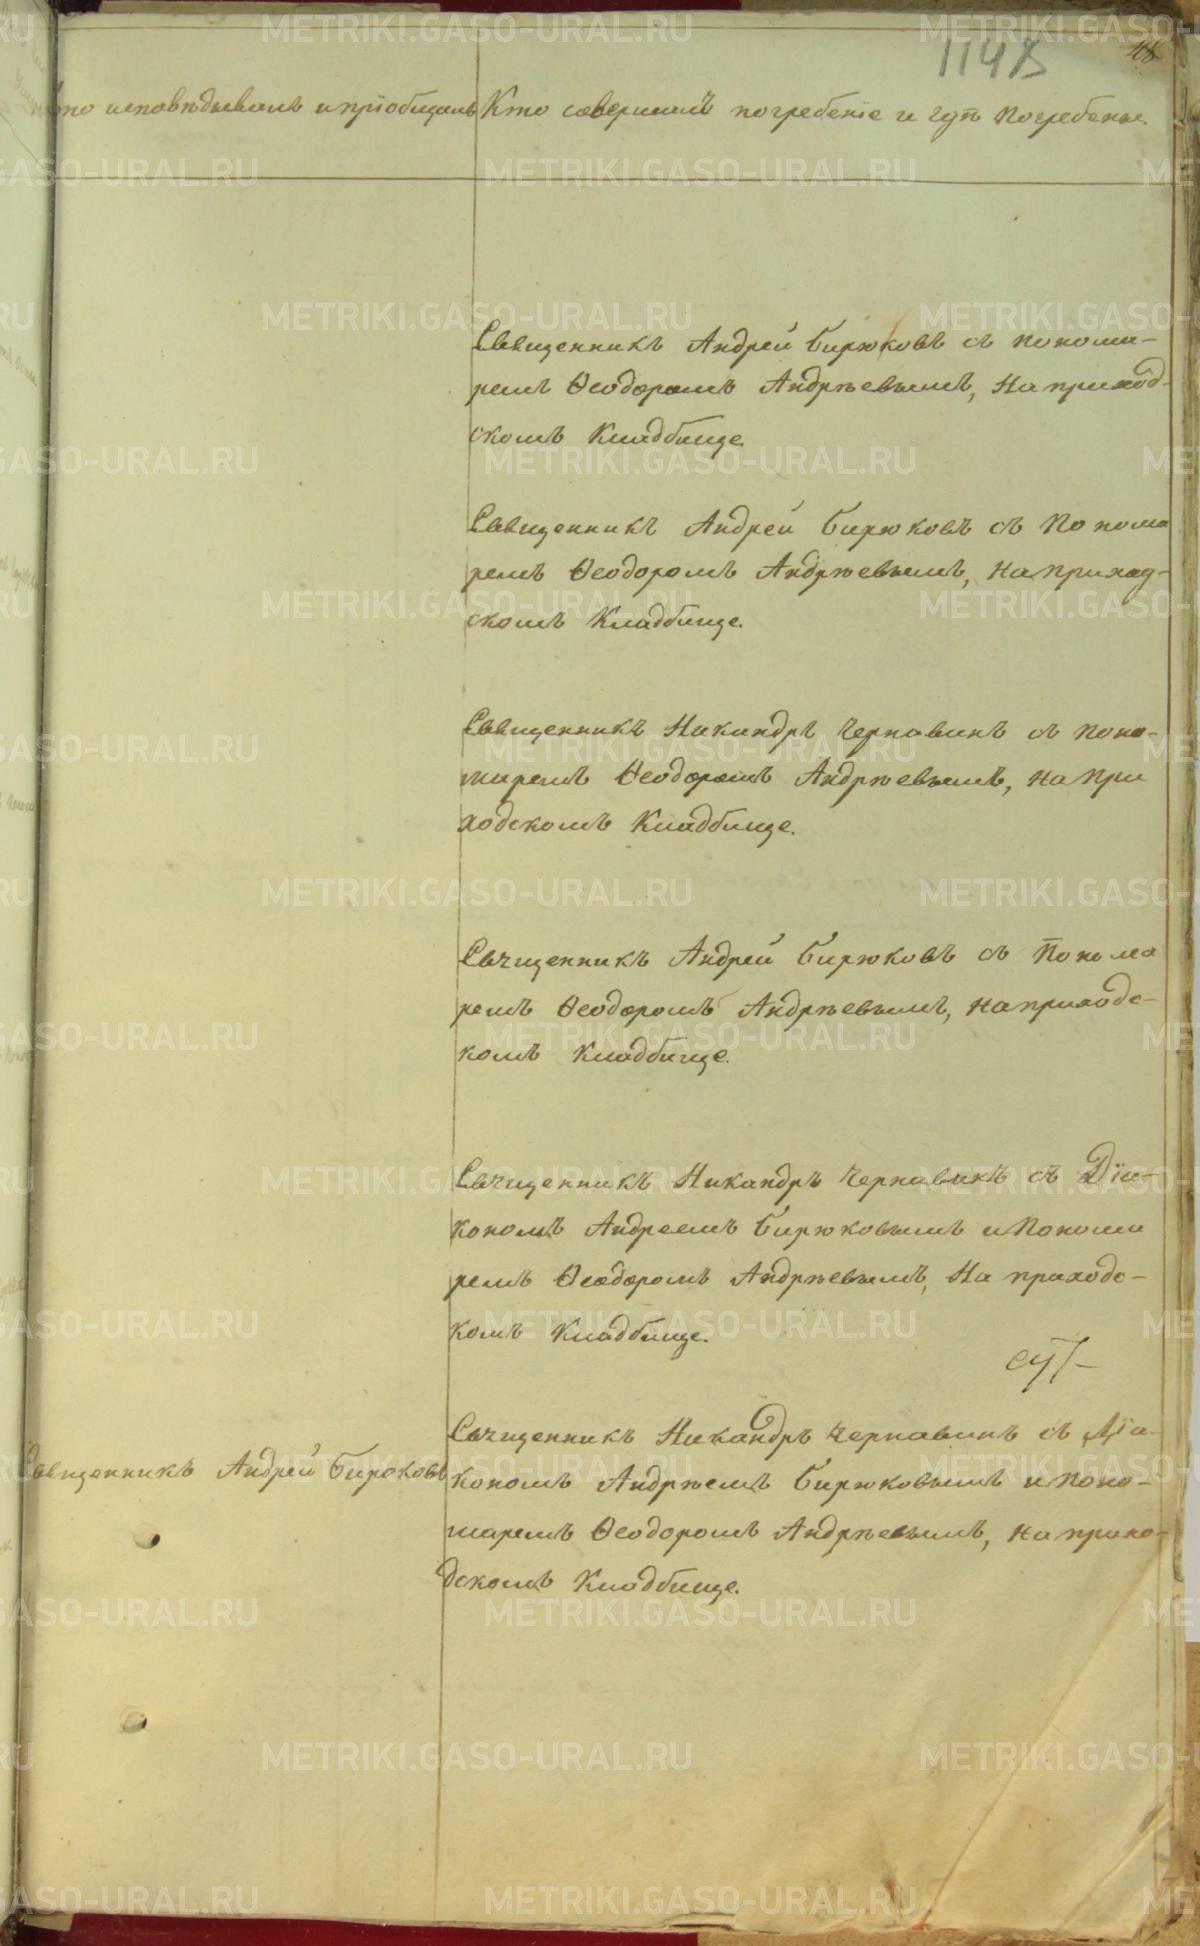 1148
Кто исповѣдывалъ и пріобщалъ
Кто совершалъ погребеніе и гдѣ Погребены.
Священникъ Андрей Бирюковъ съ Понома-
ремъ Ѳеодоромъ Андрѣевымъ, На приход-
скомъ Кладбище
Священникъ Андрей Бирюковъ съ Понома
ремъ Ѳеодоромъ Андрѣевымъ, На приход-
скомъ Кладбище.
Священникъ Никандръ Чернавинъ съ Поно-
маремъ Ѳеодоромъ Андрѣевымъ, на При
ходскомъ Кладбище.
Священникъ Андрей Бирюковъ съ Понома
ремъ Ѳеодоромъ Андрѣевымъ, на приходс-
комъ Кладбище.
Священникъ Никандръ Чернавинъ съ Діа-
кономъ Андреемъ Бирюковымъ и Понома
ремъ Ѳеодоромъ Андрѣевымъ, На приходс-
комъ Кладбище.
Священникъ Андрей Бирюковъ
Священникъ Никандръ Чернавинъ съ Діа-
кономъ Андрѣемъ Бирюковымъ и Поно-
маремъ Ѳеодоромъ Андрѣевымъ, на прихо-
дскомъ Кладбище.
METRIKI.GASO-URAL.RU